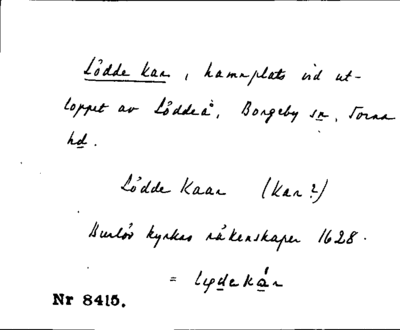 Lödde kar, hamnplats vid ut-
loppet av Lödde å, Borgeby sn, Torna
hd.
Lödde Kaar (Kar?)
Burlöv kyrkas räkenskaper 1628.
=
Nr 8415.